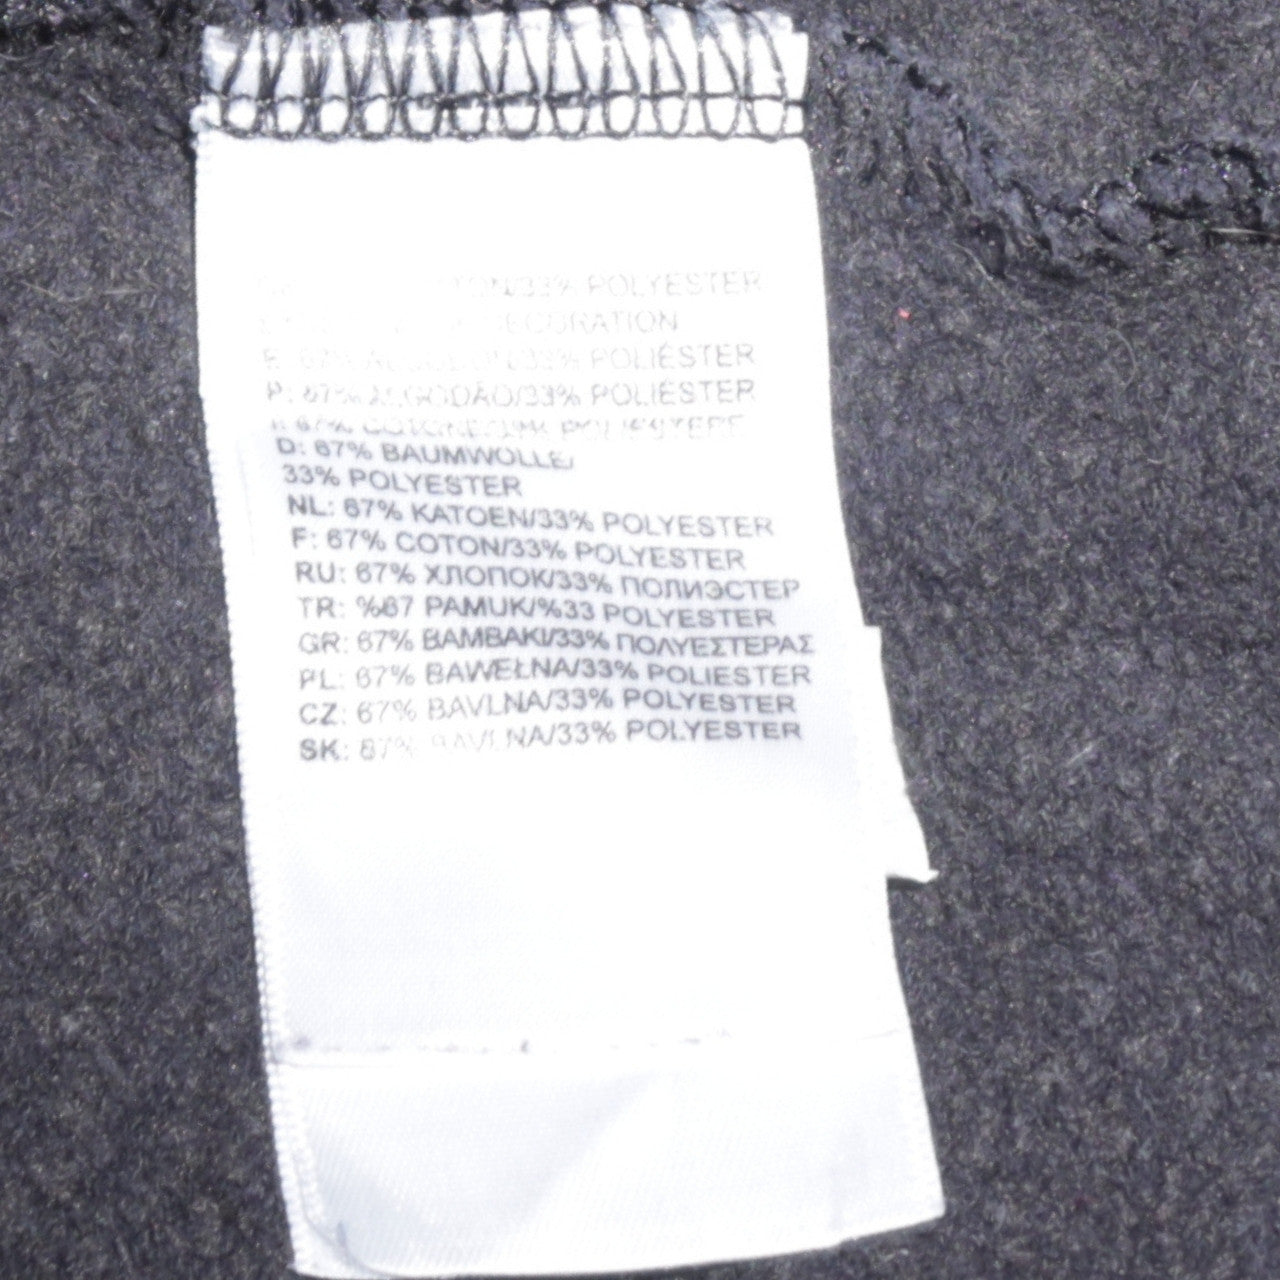 COTTON/33% POLYESTER
DECORATION
E: 67% ALGODON/33% POLIÉSTER
P: 67% ALGODÃO/33% POLIÉSTER
I: 67% COTONE/33% POLIESTERE
D: 67% BAUMWOLLE/
33% POLYESTER
NL: 67% KATOEN/33% POLYESTER
F: 67% COTON/33% POLYESTER
RU: 67% ХЛОПОК/33% ПОЛИЭСТЕР
TR: %67 PAMUK/%33 POLYESTER
GR: 67% ΒΑΜΒΑΚΙ/33% ΠΟΛΥΕΣΤΕΡΑΣ
PL: 67% BAWEŁNA/33% POLIESTER
CZ: 67% BAVLNA/33% POLYESTER
SK: 67% BAVLNA/33% POLYESTER